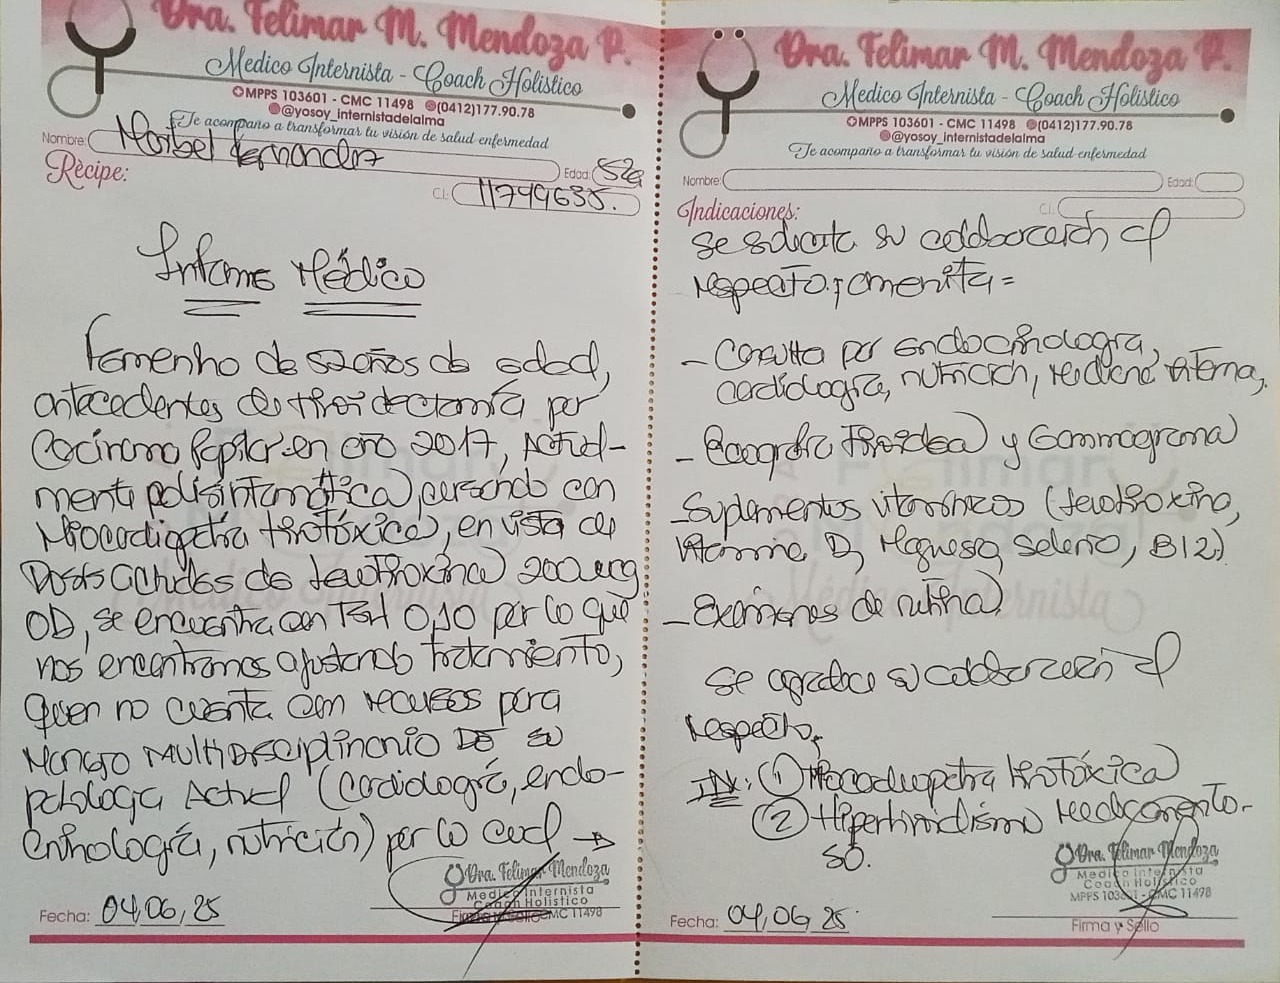 Dra. Felimar M. Mendoza P.
Medico Internista - Coach Holistico
MPPS 103601 - CMC 11498 (0412)177.90.78
@yosoy_internistadelalma
Te acompaño a transformar tu visión de salud-enfermedad
Nombre: Maribel Fernandez
Edad: 52a
Rècipe:
C.I.: 11749635.
Informe Médico
Femenino de 52 años de edad,
antecedentes de tiroidectomía por
Carcinoma Papilar en año 2017, Actual-
mente polisintomática cursando con
Miocardiopatía tirotóxica, en vista de
Dosis actuales de Levotiroxina 200 mcg
OD, se encuentra con TSH 0,10 por lo que
nos encontramos ajustando tratamiento,
quien no cuenta con recursos para
Manejo Multidisciplinario de su
patología Actual (Cardiología, endo-
crinología, nutrición) por lo cual →
Dra. Felimar Mendoza
Medico Internista
Coach Holistico
CMC 11498
Fecha: 04,06,25
Firma y Sello
Dra. Felimar M. Mendoza P.
Medico Internista - Coach Holistico
MPPS 103601 - CMC 11498 (0412)177.90.78
@yosoy_internistadelalma
Te acompaño a transformar tu visión de salud-enfermedad
Nombre:
Edad:
Indicaciones:
C.I.:
se solicita su colaboración al
respecto; amerita=
- Consulta por endocrinología,
cardiología, nutrición, medicina interna,
- Ecografía Tiroidea y Gammagrama
- Suplementos vitamínicos (Levotiroxina,
Vitamina D, Magnesio, Selenio, B12)
- Exámenes de rutina
se agradece su colaboración al
respecto,
① Miocardiopatía tirotóxica
② Hipertiroidismo Medicamento-
so.
Dra. Felimar Mendoza
Medico Internista
Coach Holistico
MPPS 103601 - CMC 11498
Fecha: 04,06,25
Firma y Sello